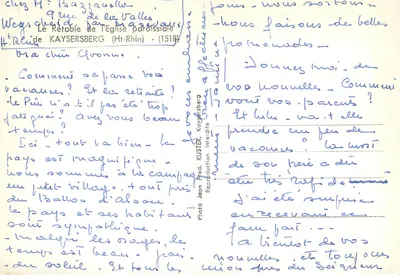 chez M. Bazzanella
9 rue de la Vallée
Wegscheid
Ht Rhin
Le Retable de l'Eglise paroissiale
KAYSERSBERG (Ht-Rhin) - (1518)
Ma chère Yvonne
Comment se passe vos
vacances? Et la retraite!
le Père n'a t'il pas été trop
fatigué? avez vous beau
temps?
Ici - tout va bien - le
pays est magnifique -
nous sommes à la campagne
en petit village - tout près
du Ballon d'alsace.
le pays et ses habitants
sont sympathique.
malgré les orages, le
temps est beau -
du soleil. Et tous les
jours - nous sortons -
nous faisons de belles
promenades -
Donnez moi de
vos nouvelles - Comment
vont vos parents?
Et
prendre un peu de
vacances? la mort
de son père a dû
être très
J'ai été surprise
en recevant ce
faire part -
à bientôt de vos
nouvelles et toujours
union
du Seigneur
Photo Jean Fred. KUSTER, Kaysersberg
Reproduction interdite